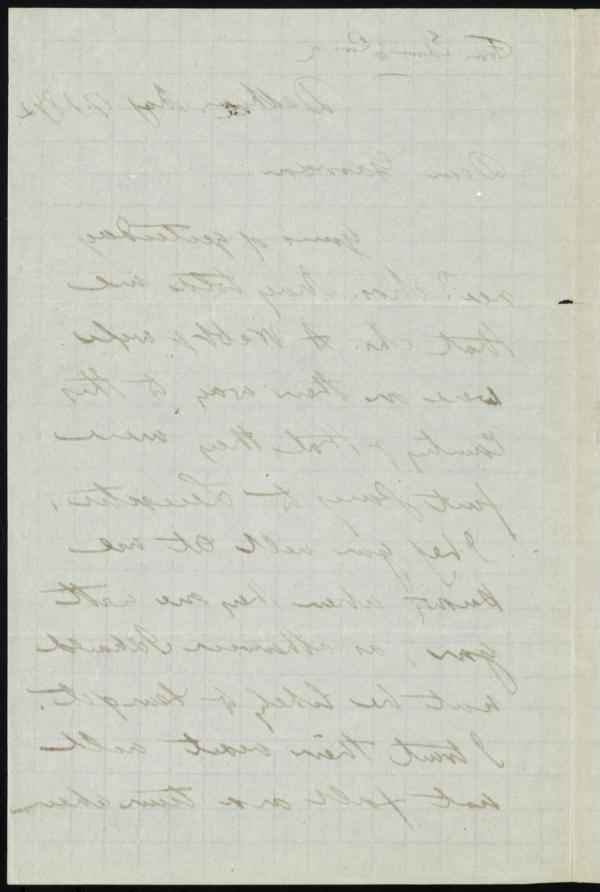 From Edmund Quincy
Dedham, Aug 9. 1872
Dear Garrison
Yours of yesterday
rec'd. Chas. May told me
that Ch. & wife
were on their way to this
Country, & that they were
first going to Leicester.
I beg you will let me
know when they are with
you, as otherwise I should
not be likely to
I trust their visit will
not fall on a time when